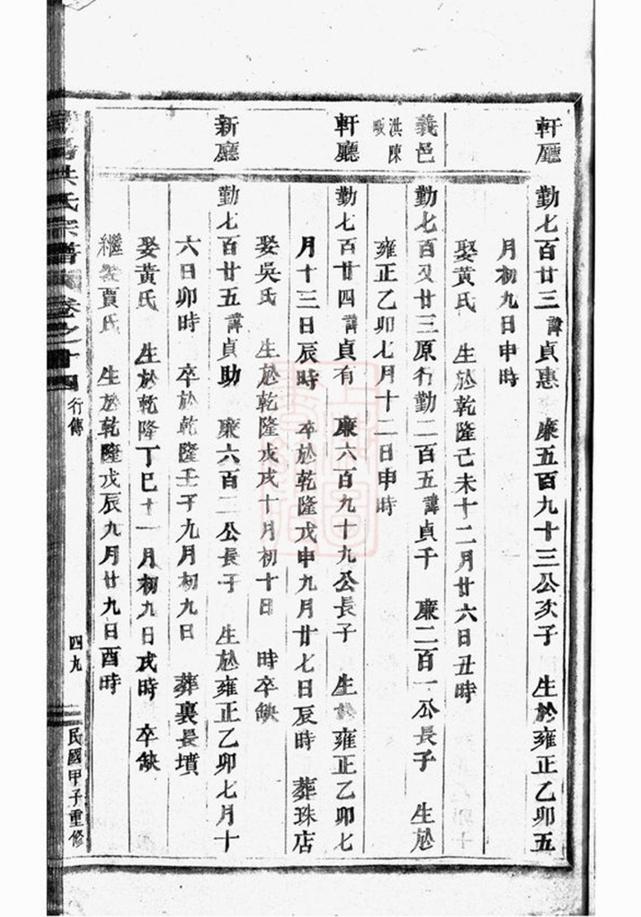 軒廳
勤七百廿三諱貞惠　廉五百九十三公次子　生於雍正乙卯五
月初九日申時
娶黃氏　生於乾隆己未十二月廿六日丑時
義邑
洪陳
勤七百又廿三原行勤二百五諱貞千　廉二百一公長子　生於
雍正乙卯七月十二日申時
軒廳
勤七百廿四諱貞有　廉六百九十九公長子　生於雍正乙卯七
月十三日辰時　卒於乾隆戊申九月廿七日辰時　葬珠店
娶吳氏　生於乾隆戊戌十月初十日　時卒缺
新廳
勤七百廿五諱貞助　廉六百二公長子　生於雍正乙卯七月十
六日卯時　卒於乾隆壬子九月初九日　葬裏長墳
娶黃氏　生於乾隆丁巳十一月初九日戌時　卒缺
繼娶賈氏　生於乾隆戊辰九月廿九日酉時
洪氏宗譜　卷之十四　行傳　四九　民國甲子重修